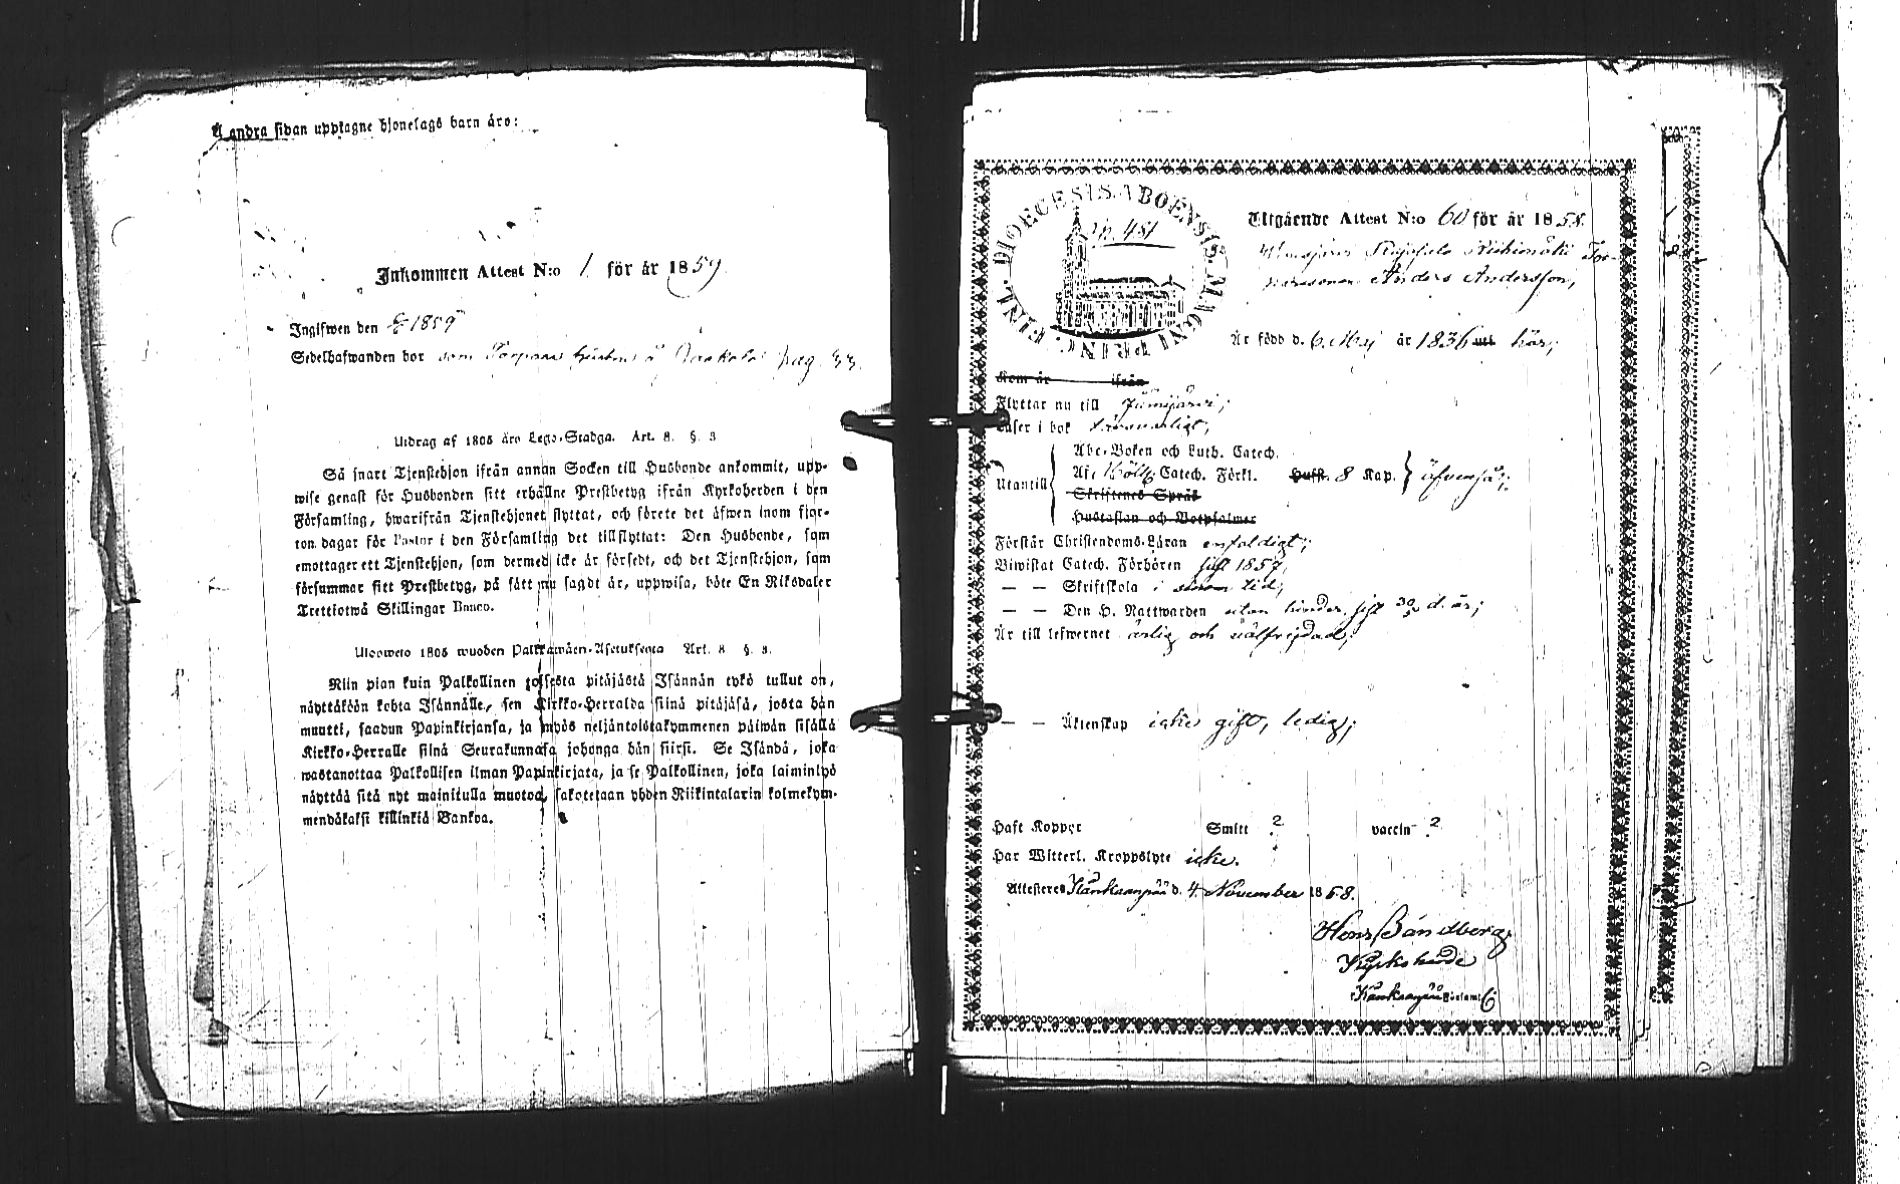 Å andra sidan upptagne hjonelags barn äro:
Inkommen Attest N:o 1 för år 1859.
Ingifwen den 1859
Sedelhafwanden bor som Torpare å pag. 33.
Utdrag af 1805 års Lego-Stadga. Art. 8. §. 3
Så snart Tjenstehjon ifrån annan Socken till Husbonde ankommit, upp-
wise genast för Husbonden sitt erhållne Prestbetyg ifrån Kyrkoherden i den
Församling, hwarifrån Tjenstehjonet flyttat, och förete det äfwen inom fjor-
ton dagar för Pastor i den Församling det tillflyttat: Den Husbonde, som
emottager ett Tjenstehjon, som dermed icke är försedt, och det Tjenstehjon, som
försummar sitt Prestbetyg, på sätt nu sagdt är, uppwisa, böte En Riksdaler
Trettiotwå Skillingar Banco.
Ulosweto 1805 wuoden Palkkawäen-Asetuksesta Art. 8 §. 3.
Niin pian kuin Palkollinen toisesta pitäjästä Isännän tykö tullut on,
näyttäkään kohta Isännälle, sen Kirkko-Herralda siinä pitäjäsä, josta hän
muutti, saadun Papinkirjansa, ja myös neljäntoistakymmenen päiwän sisällä
Kirkko-Herralle siinä Seurakunnasa johonga hän siirsi. Se Isändä, joka
wastanottaa Palkollisen ilman Papinkirjata, ja se Palkollinen, joka laiminlyö
näyttää sitä nyt mainitulla muotoa, sakotetaan yhden Riikintalarin kolmekym-
mendäkaksi killinkiä Bankoa.
DIOECESIS ABOENSIS. MAGNI PRINC. FINL.
p. 451
Utgående Attest N:o 60 för år 1858.
Anders Andersson,
Är född d. 6 Maj år 1836 uti här;
Kom år ifrån
Flyttar nu till Jämijärvi;
Läser i bok
Utantill
Abc-Boken och Luth. Catech.
Af Catech. Förkl. Husft. 8 Kap. äfvenså;
Skriftenes Språk
Hustaflan och Botpsalmer
Förstår Christendoms-Läran enfaldigt;
Biwistat Catech. Förhören sist 1857,
— — Skriftskola i sinom tid;
— — Den H. Nattwarden utan hinder, sist d. år;
Är till lefwernet ärlig och välfrejdad;
— — Äktenskap icke gift, ledig;
Haft Koppor Smitt ? vaccin ?
Har Witterl. Kroppslyte icke.
Attesteres Kankaanpää d. 4 November 1858.
Sandberg
Kyrkoherde
i Kankaanpää Församl.